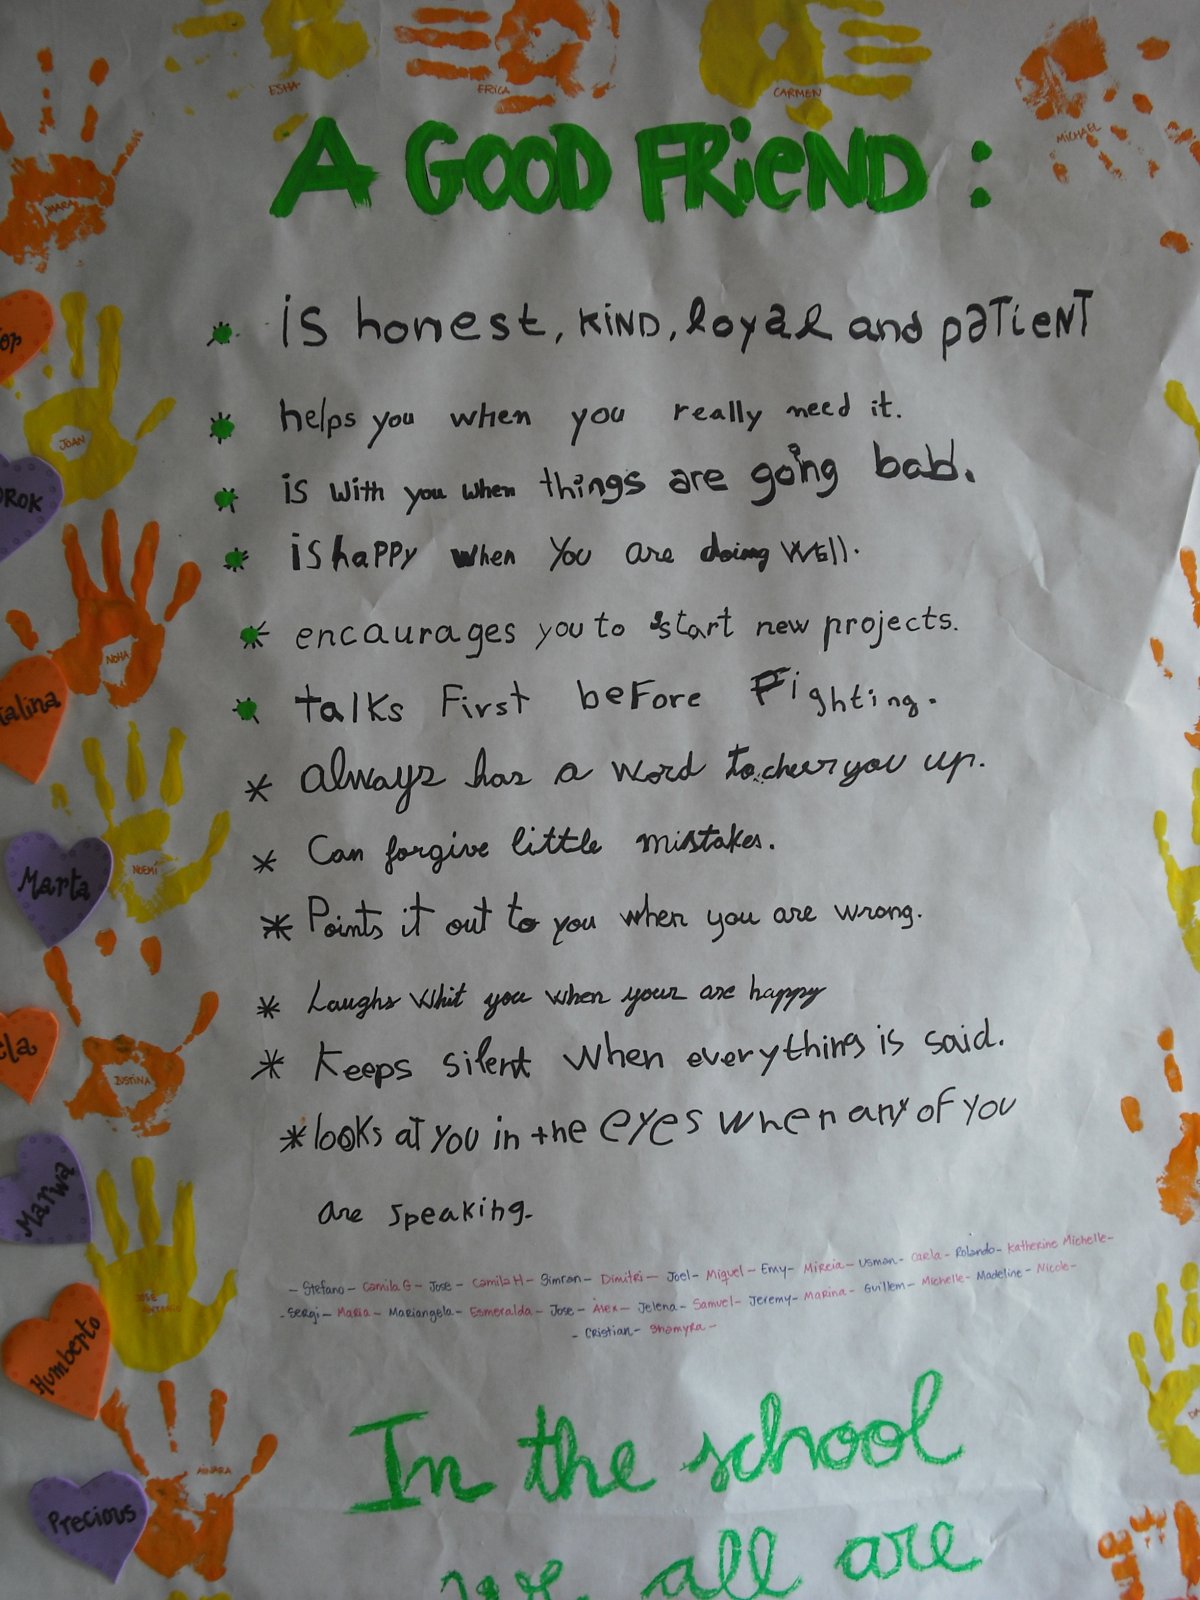 ESHA
ERICA
CARMEN
MICHAEL
MARA
A GOOD FRIEND :
is honest, KIND, loyal and paTieNT
helps you when you really need it.
is with you when things are going bad.
is happy when you are doing well.
encaurages you to start new projects.
talks First beFore Fighting.
always has a word to cheer you up.
Can forgive little mistakes.
Points it out to you when you are wrong.
Laughs whit you when your are happy
Keeps silent when everything is said.
looks at you in the eyes when any of you
are speaking.
- Stefano - Camila G - Jose - Camila H - Simran - Dimitri - Joel - Miquel - Emy - Mireia - Usman - Carla - Rolando - Katherine Michelle -
- Sergi - Maria - Mariangela - Esmeralda - Jose - Alex - Jelena - Samuel - Jeremy - Marina - Guillem - Michelle - Madeline - Nicole -
- Cristian - Shamyra -
In the school
we all are
JOAN
NOHA
alina
NOEMÍ
Marta
IUSTINA
ela
Marwa
JOSÉ
ANTONIO
Humberto
AINARA
Precious